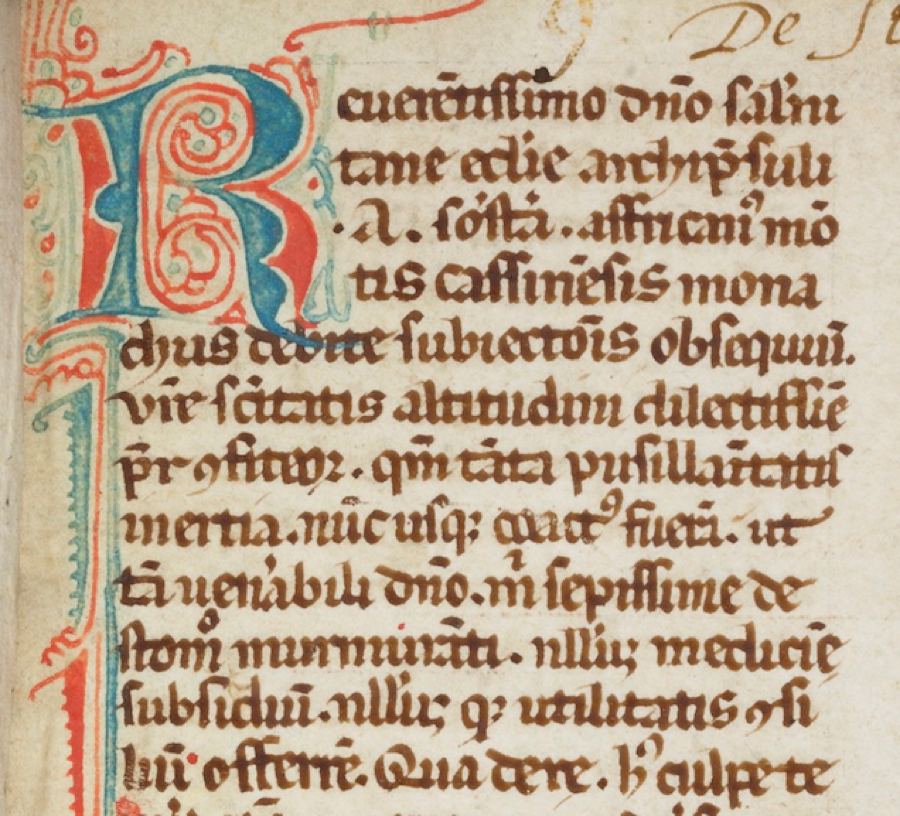 De St
Reuerētissimo dn̄o sal'ni
tane ecclie archip̄suli
.A. ſc̄ſtā. affricanꝰ mō
tis cassinēsis mona
chus debite subiectōis obsequiū.
vr̄e sc̄itatis altitudini dilectissīe
p̄r ꝯfiteor. qm̄ tāta pusillāitatis
inertia. nūc usqꝫ coactꝰ fuerī. ut
tā uenābili dn̄o. m̄ sepissime de
stomͦ murmurāti. nlliꝫ mediciē
subsidiū. nlliꝫ qꝫ utilitatis ꝯsi
liū offerrē. Qua de re. hꝰ culpe te